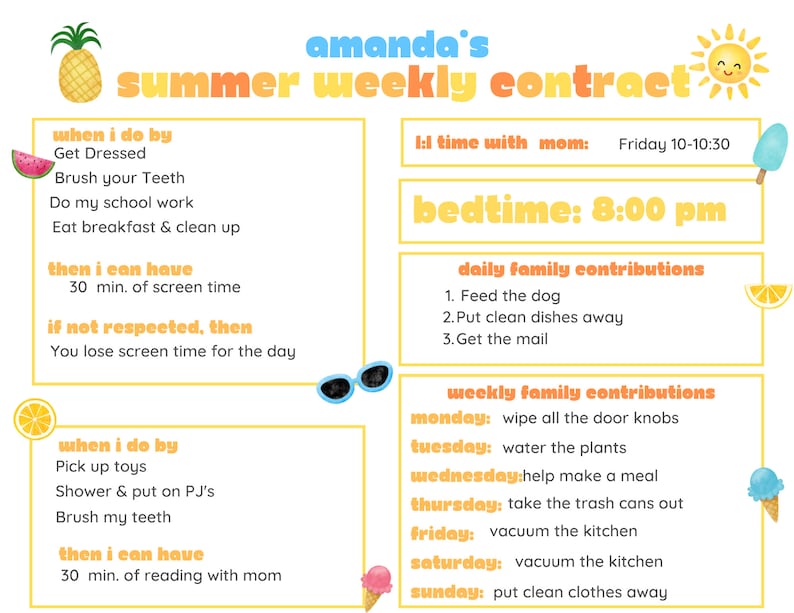 amanda's
summer weekly contract
when i do by
Get Dressed
Brush your Teeth
Do my school work
Eat breakfast & clean up
then i can have
30 min. of screen time
if not respected, then
You lose screen time for the day
when i do by
Pick up toys
Shower & put on PJ's
Brush my teeth
then i can have
30 min. of reading with mom
1:1 time with mom: Friday 10-10:30
bedtime: 8:00 pm
daily family contributions
1. Feed the dog
2.Put clean dishes away
3.Get the mail
weekly family contributions
monday: wipe all the door knobs
tuesday: water the plants
wednesday:help make a meal
thursday: take the trash cans out
friday: vacuum the kitchen
saturday: vacuum the kitchen
sunday: put clean clothes away